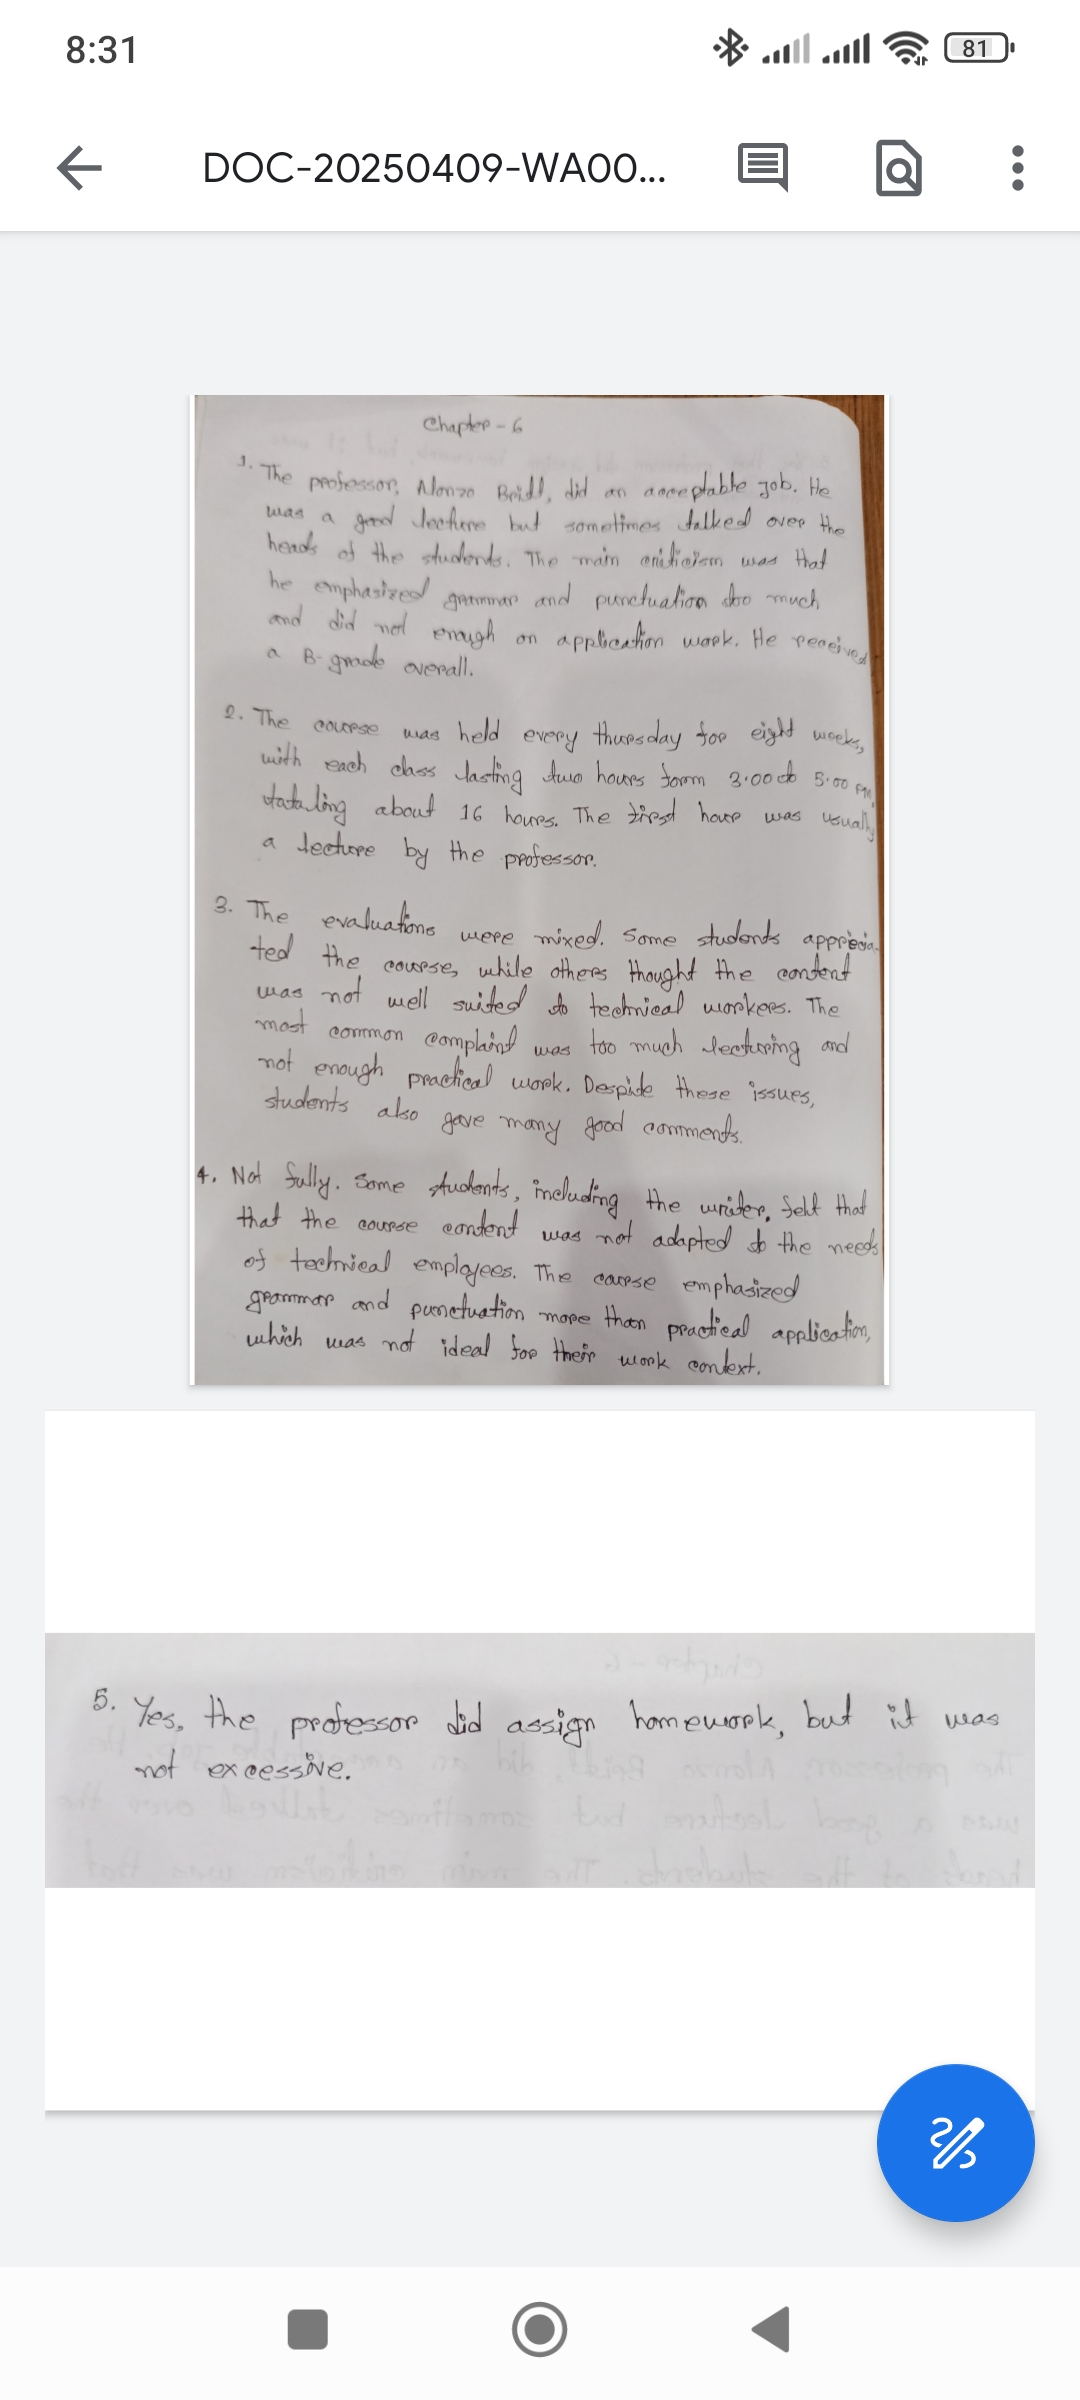 8:31
81
DOC-20250409-WA00...
Chapter - 6
1. The professor, Alonzo Bridl, did an acceptable job. He
was a good lecture but sometimes talked over the
heads of the students. The main criticism was that
he emphasized grammar and punctuation too much
and did not enough on application work. He received
a B-grade overall.
2. The course was held every thursday for eight weeks,
with each class lasting two hours form 3.00 to 5.00 PM,
totaling about 16 hours. The first hour was usually
a lecture by the professor.
3. The evaluations were mixed. Some students apprecia-
ted the course, while others thought the content
was not well suited to technical workers. The
most common complaint was too much lecturing and
not enough practical work. Despite these issues,
students also gave many good comments.
4. Not fully. Some students, including the writer, felt that
that the course content was not adapted to the needs
of technical employees. The course emphasized
grammar and punctuation more than practical application,
which was not ideal for their work context.
5. Yes, the professor did assign homework, but it was
not excessive.